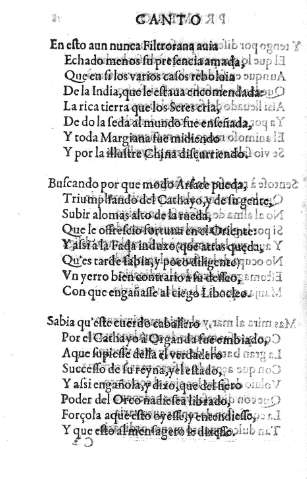 CANTO
En esto aun nunca Filtrorana auia
Echado menos su presencia amada,
Que en si los varios casos reboluia
De la India, que le estaua encomendada:
La rica tierra que los Seres cria,
De do la seda al mundo fue enseñada,
Y toda Margiana fue midiendo
Y por la illustre China discurriendo.
Buscando por que modo Arsace pueda,
Triumphando del Cathayo, y de su gente,
Subir alo mas alto de la rueda,
Que le offrescio fortuna en el Oriente:
Y assi a la Fada induxo (que atras queda,
Qu'es tarde sabia, y poco diligente)
Vn yerro bien contrario a su desseo,
Con que engañasse al ciego Libocleo.
Sabia qu'este cuerdo cauallero
Por el Cathayo à Organda fue embiado,
Aque supiesse della el verdadero
Successo de su reyna, y el estado,
Y assi engañola, y dixo, que del fiero
Poder del Orco nadie sea librado,
Forçola a que esto oyesse, y encendiesso,
Y que esto al mensagero le dixesse.